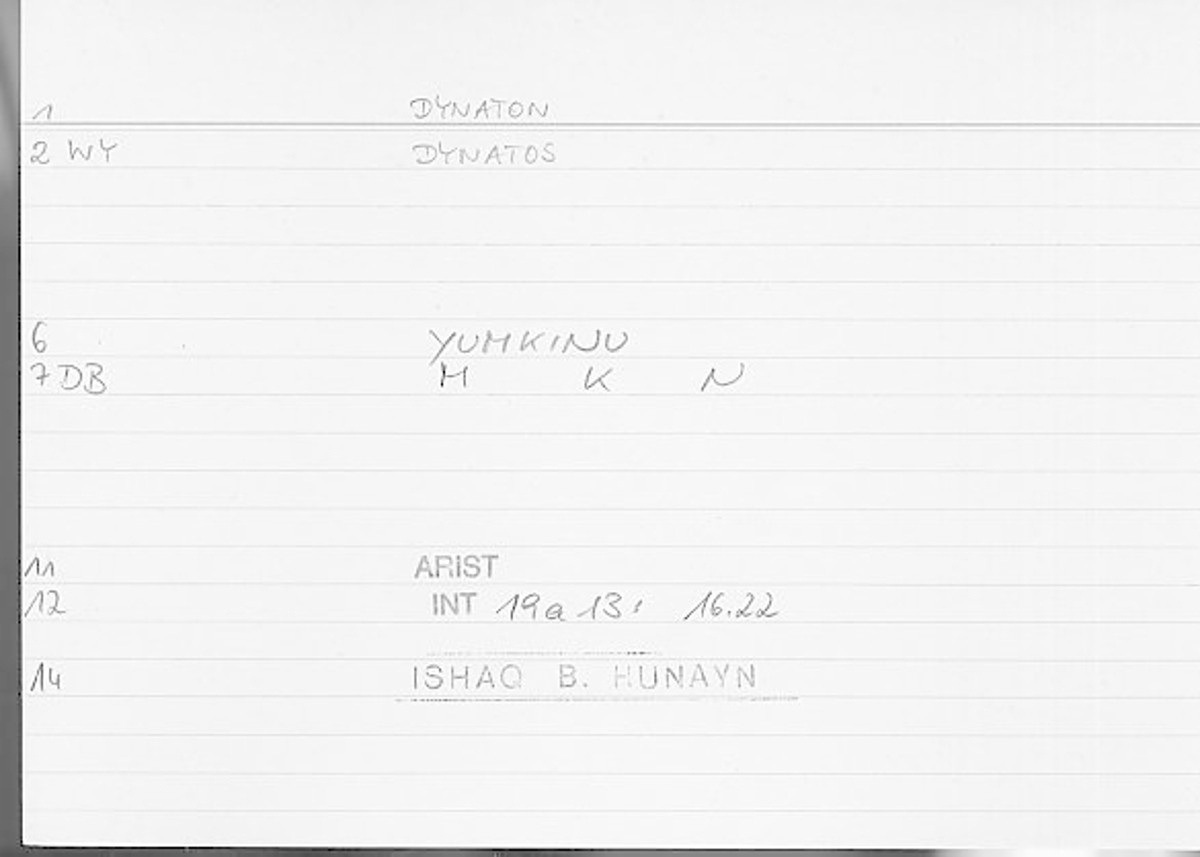 1 DYNATON
2 WY DYNATOS
6 YUMKINU
7 DB M K N
11 ARIST
12 INT 19a 13; 16.22
14 ISHAQ B. HUNAYN